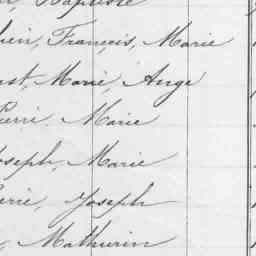 Baptiste
François, Marie
Marie, Ange
Pierri, Marie
Joseph, Marie
Joseph
Mathurin